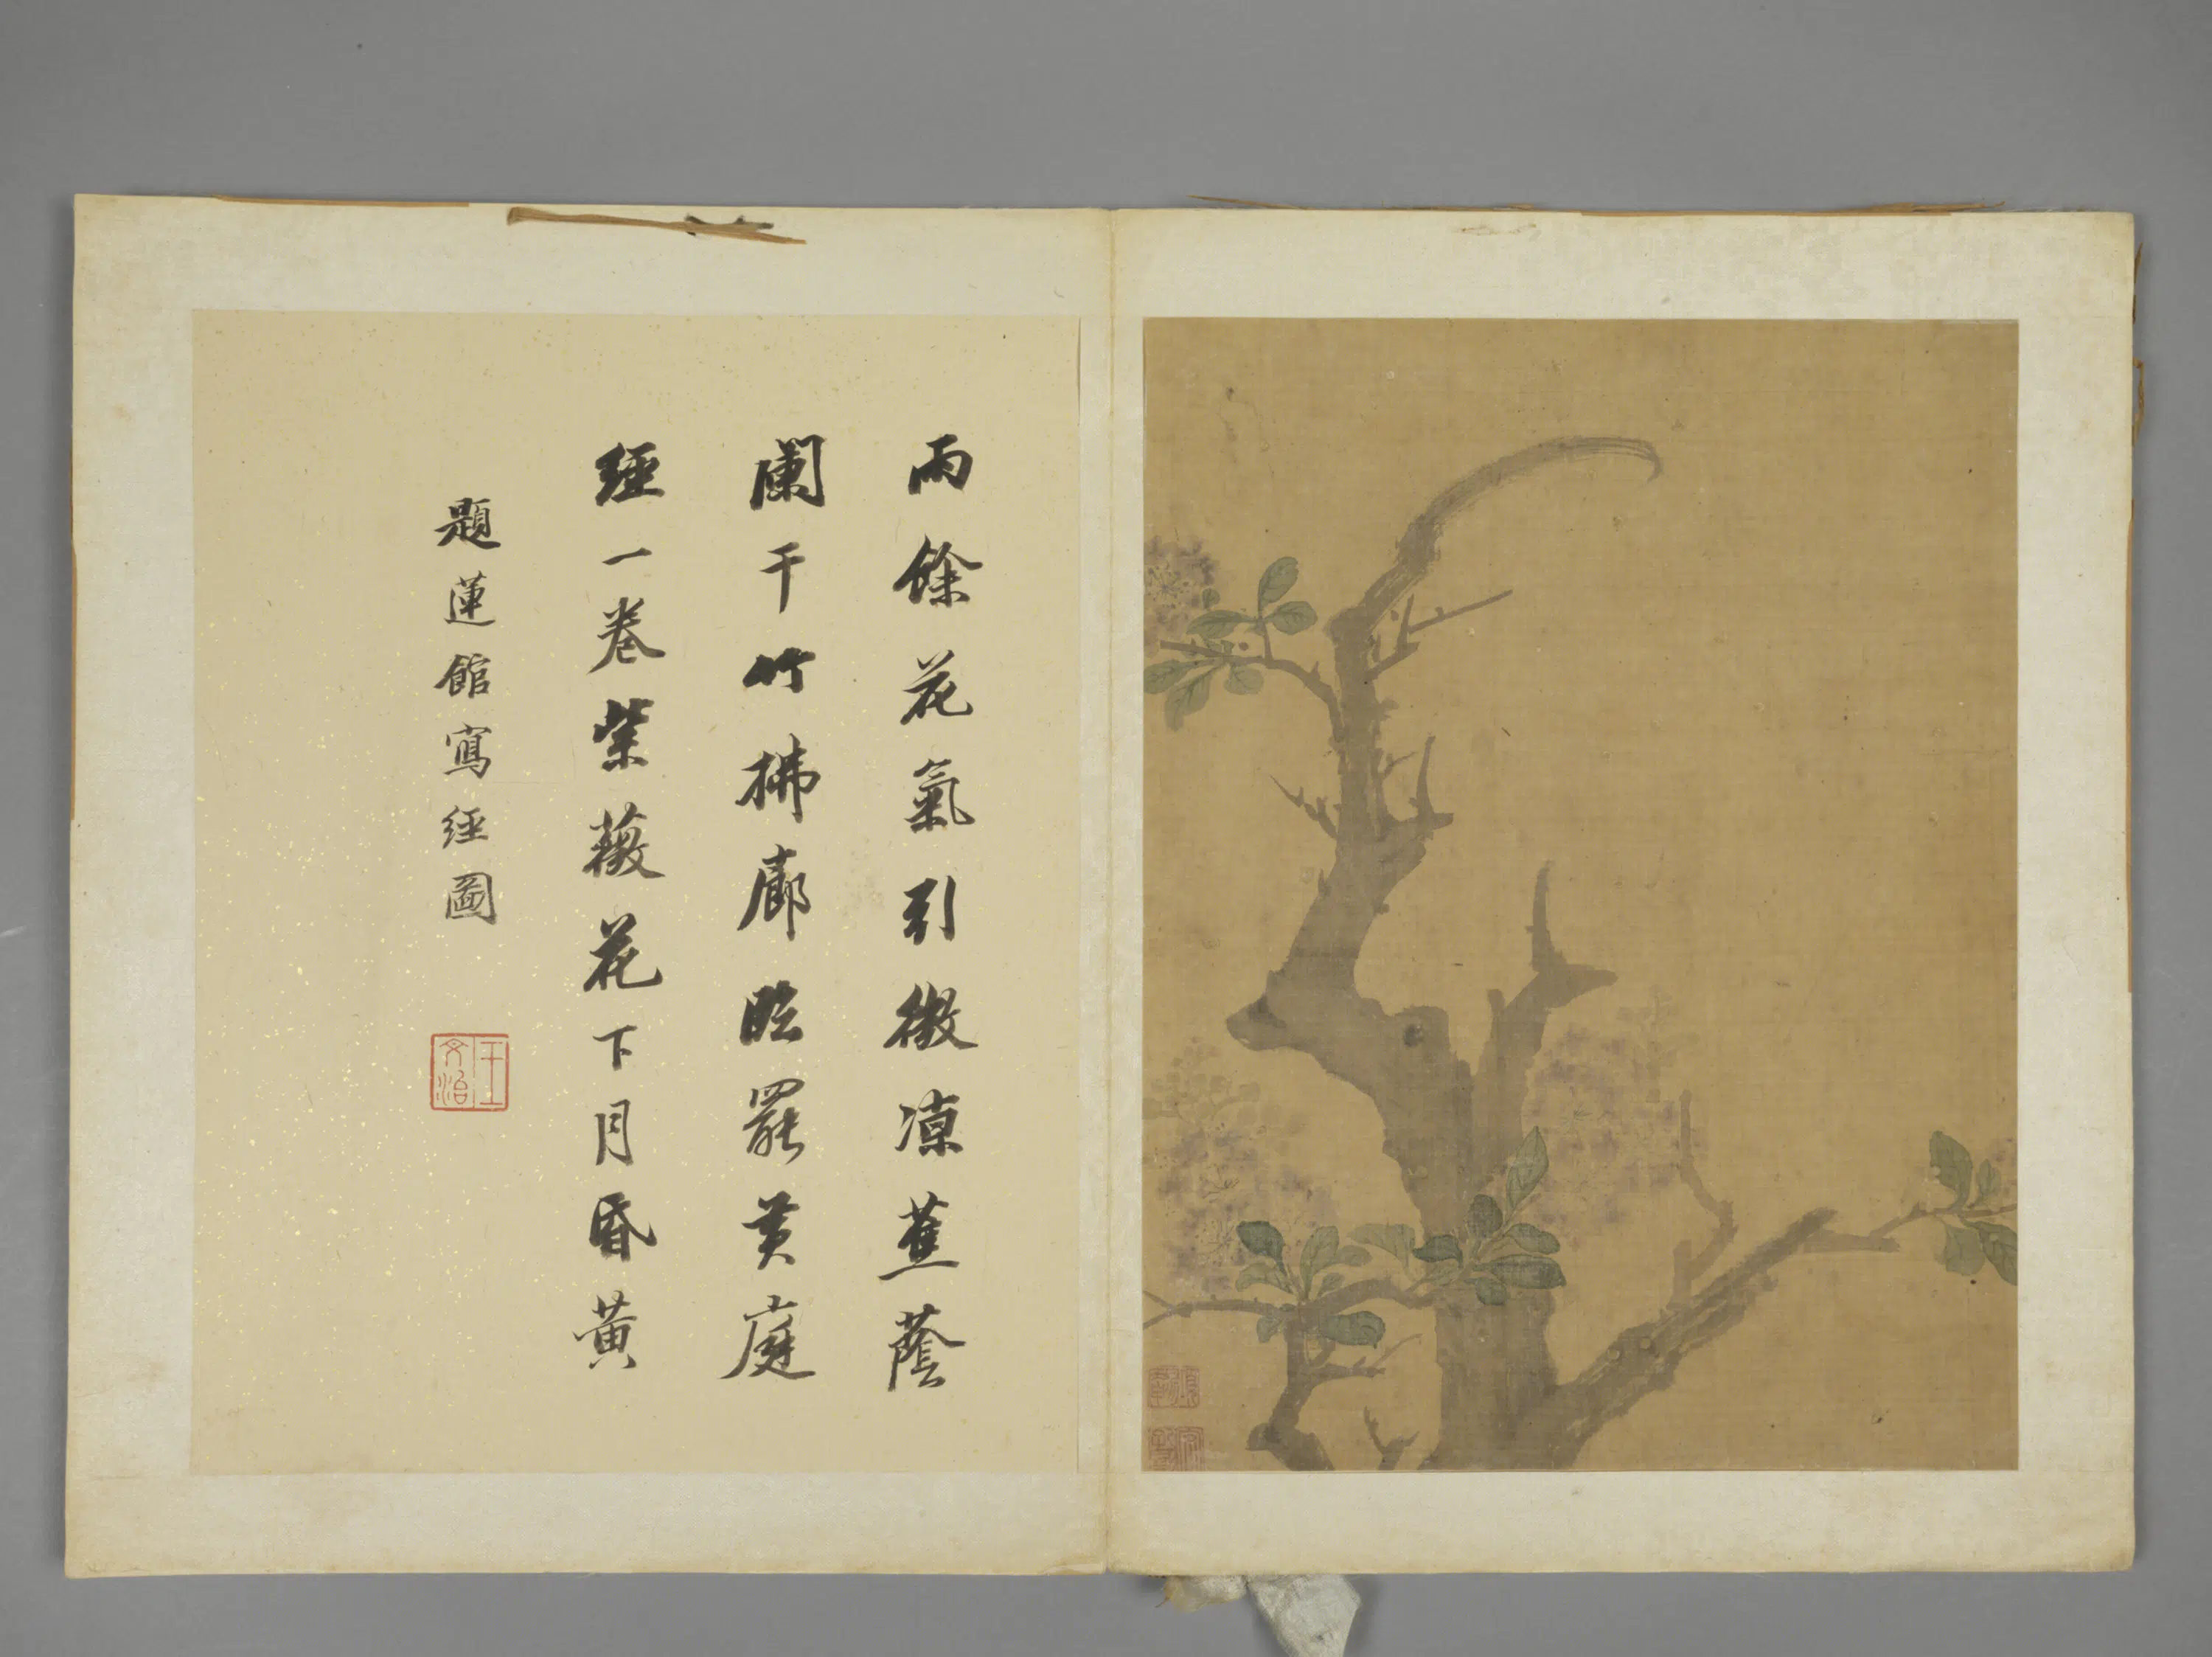 雨餘花氣引微涼蕉蔭
闌干竹拂廊臨罷黃庭
經一卷紫薇花下月昏黃
題蓮館寫經圖
王文治